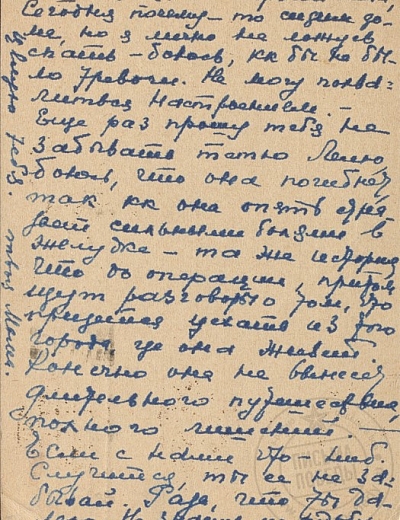 Сегодня почему-то сидим до-
ма, но я лично не ложусь
спать - боюсь, кк бы не бы-
ло тревоги. Не могу похва-
литься настроением. -
Еще раз прошу тебя не
забывать тетю Лелю
боюсь, что она погибнет
так кк она опять стра-
дает сильными болями в
желудке - та же история
что до операции, притом
идут разговоры о том, что
придется уехать из того
города где она живет.
Конечно она не вынесет
длительного путешествия,
полного лишений -
Если с нами что-ниб.
случится, ты ее не за-
бывай. Рада, что ты да-
целую тебя. твоя
ПИСЬМА
ПОБЕДЫ